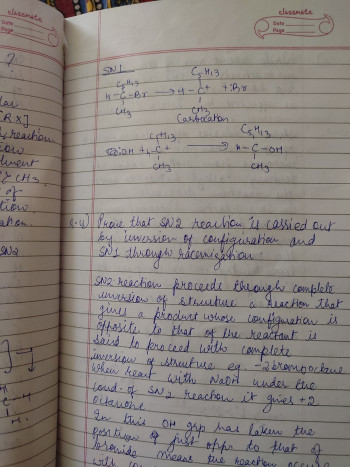 classmate
Date
Page
classmate
Date
Page
?
SN1
C₆H₁₃ C₆H₁₃
H-C-Br → H-C⁺ + :Br
CH₃ CH₃
Carbocation
C₆H₁₃ C₆H₁₃
+ H-C⁺ → H-C-OH
CH₃ CH₃
RX]
reaction
CH3
of
SN2
Prove that SN2 reaction is carried out
by inversion of configuration and
SN1 through racemization.
SN2 reaction proceeds through complete
inversion of structure a reaction that
gives a product whose configuration is
opposite to that of the reactant is
said to proceed with complete
inversion of structure eg. -2bromooctane
when heat with NaOH under the
cond. of SN2 reaction it gives +2
octanone
In this OH grp has taken the
position of just opp. to that of
bromide means the reaction
with